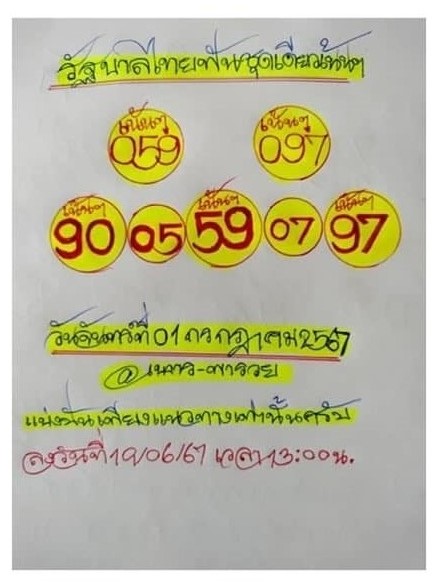 รัฐบาลไทยฟันชุดเดียวเน้นๆ
เน้นๆ เน้นๆ
059 097
เน้นๆ เน้นๆ เน้นๆ
90 05 59 07 97
วันจันทร์ที่ 01 กรกฎาคม 2567
@เนทร-พารวย
แบ่งปันเพียงแนวทางเท่านั้นครับ
ลงวันที่ 19/06/67 เวลา 13:00 น.